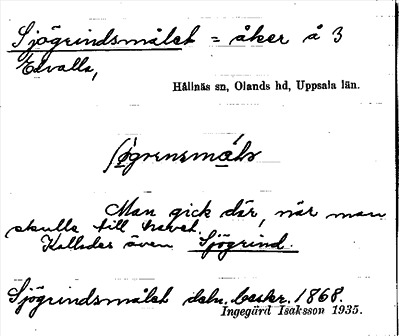 Sjögrindsmålet = åker å 3
Edvalla,
Hållnäs sn, Olands hd, Uppsala län.
Man gick där, när man
skulle till havet.
Kallades även Sjögrind.
Sjögrindsmålet deln. beskr. 1868.
Ingegärd Isaksson 1935.